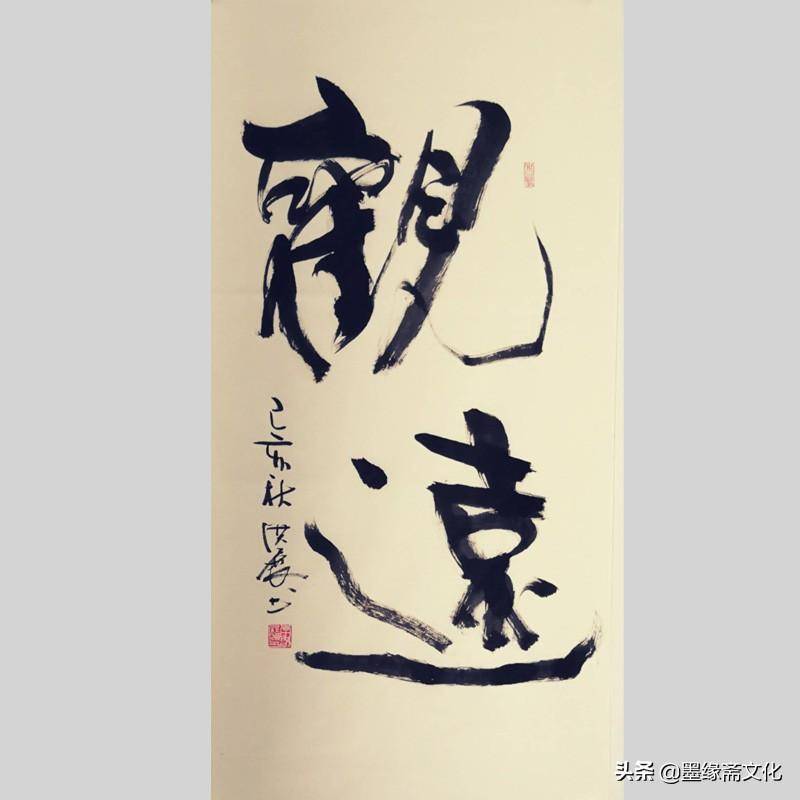 觀
遠
己亥秋洪展书
头条 @墨缘斋文化